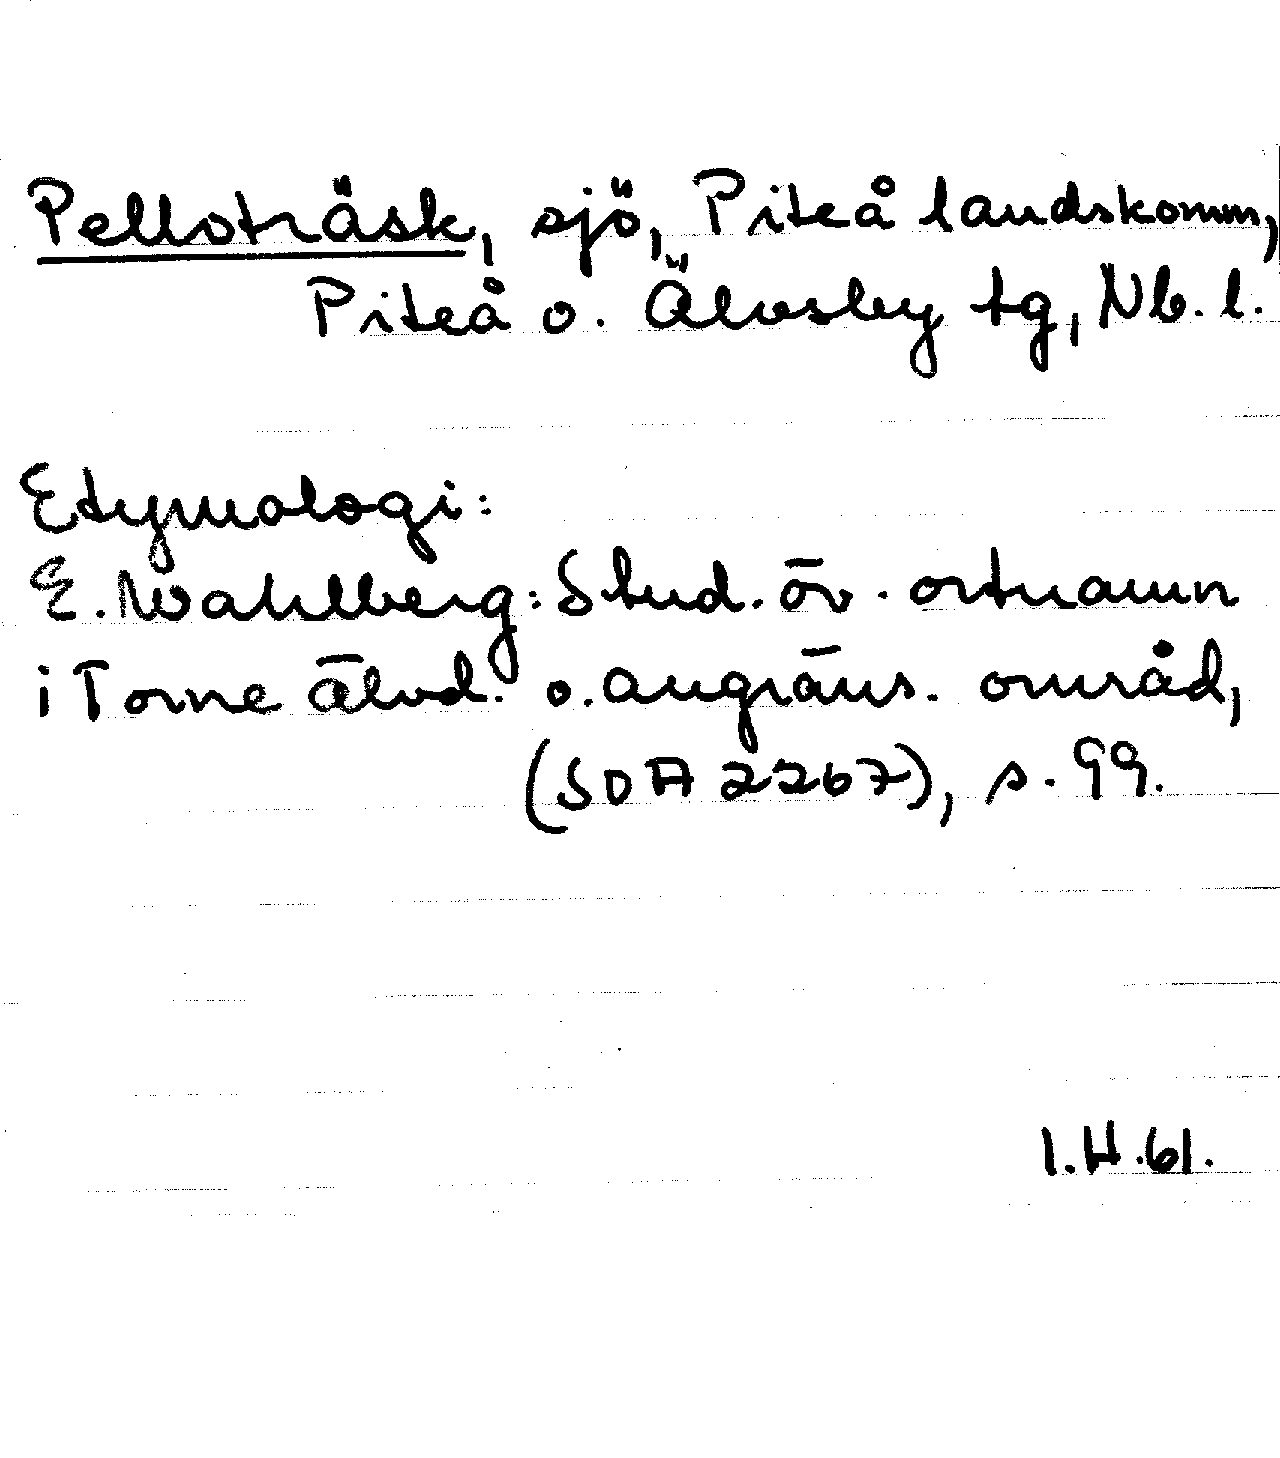 Pelloträsk, sjö, Piteå landskomm,
Piteå o. Älvsby tg, Nb. l.
Etymologi:
E. Wahlberg: Stud. öv. ortnamn
i Torne älvd. o. angräns. områd,
(SOA 2267), s. 99.
1.H.61.